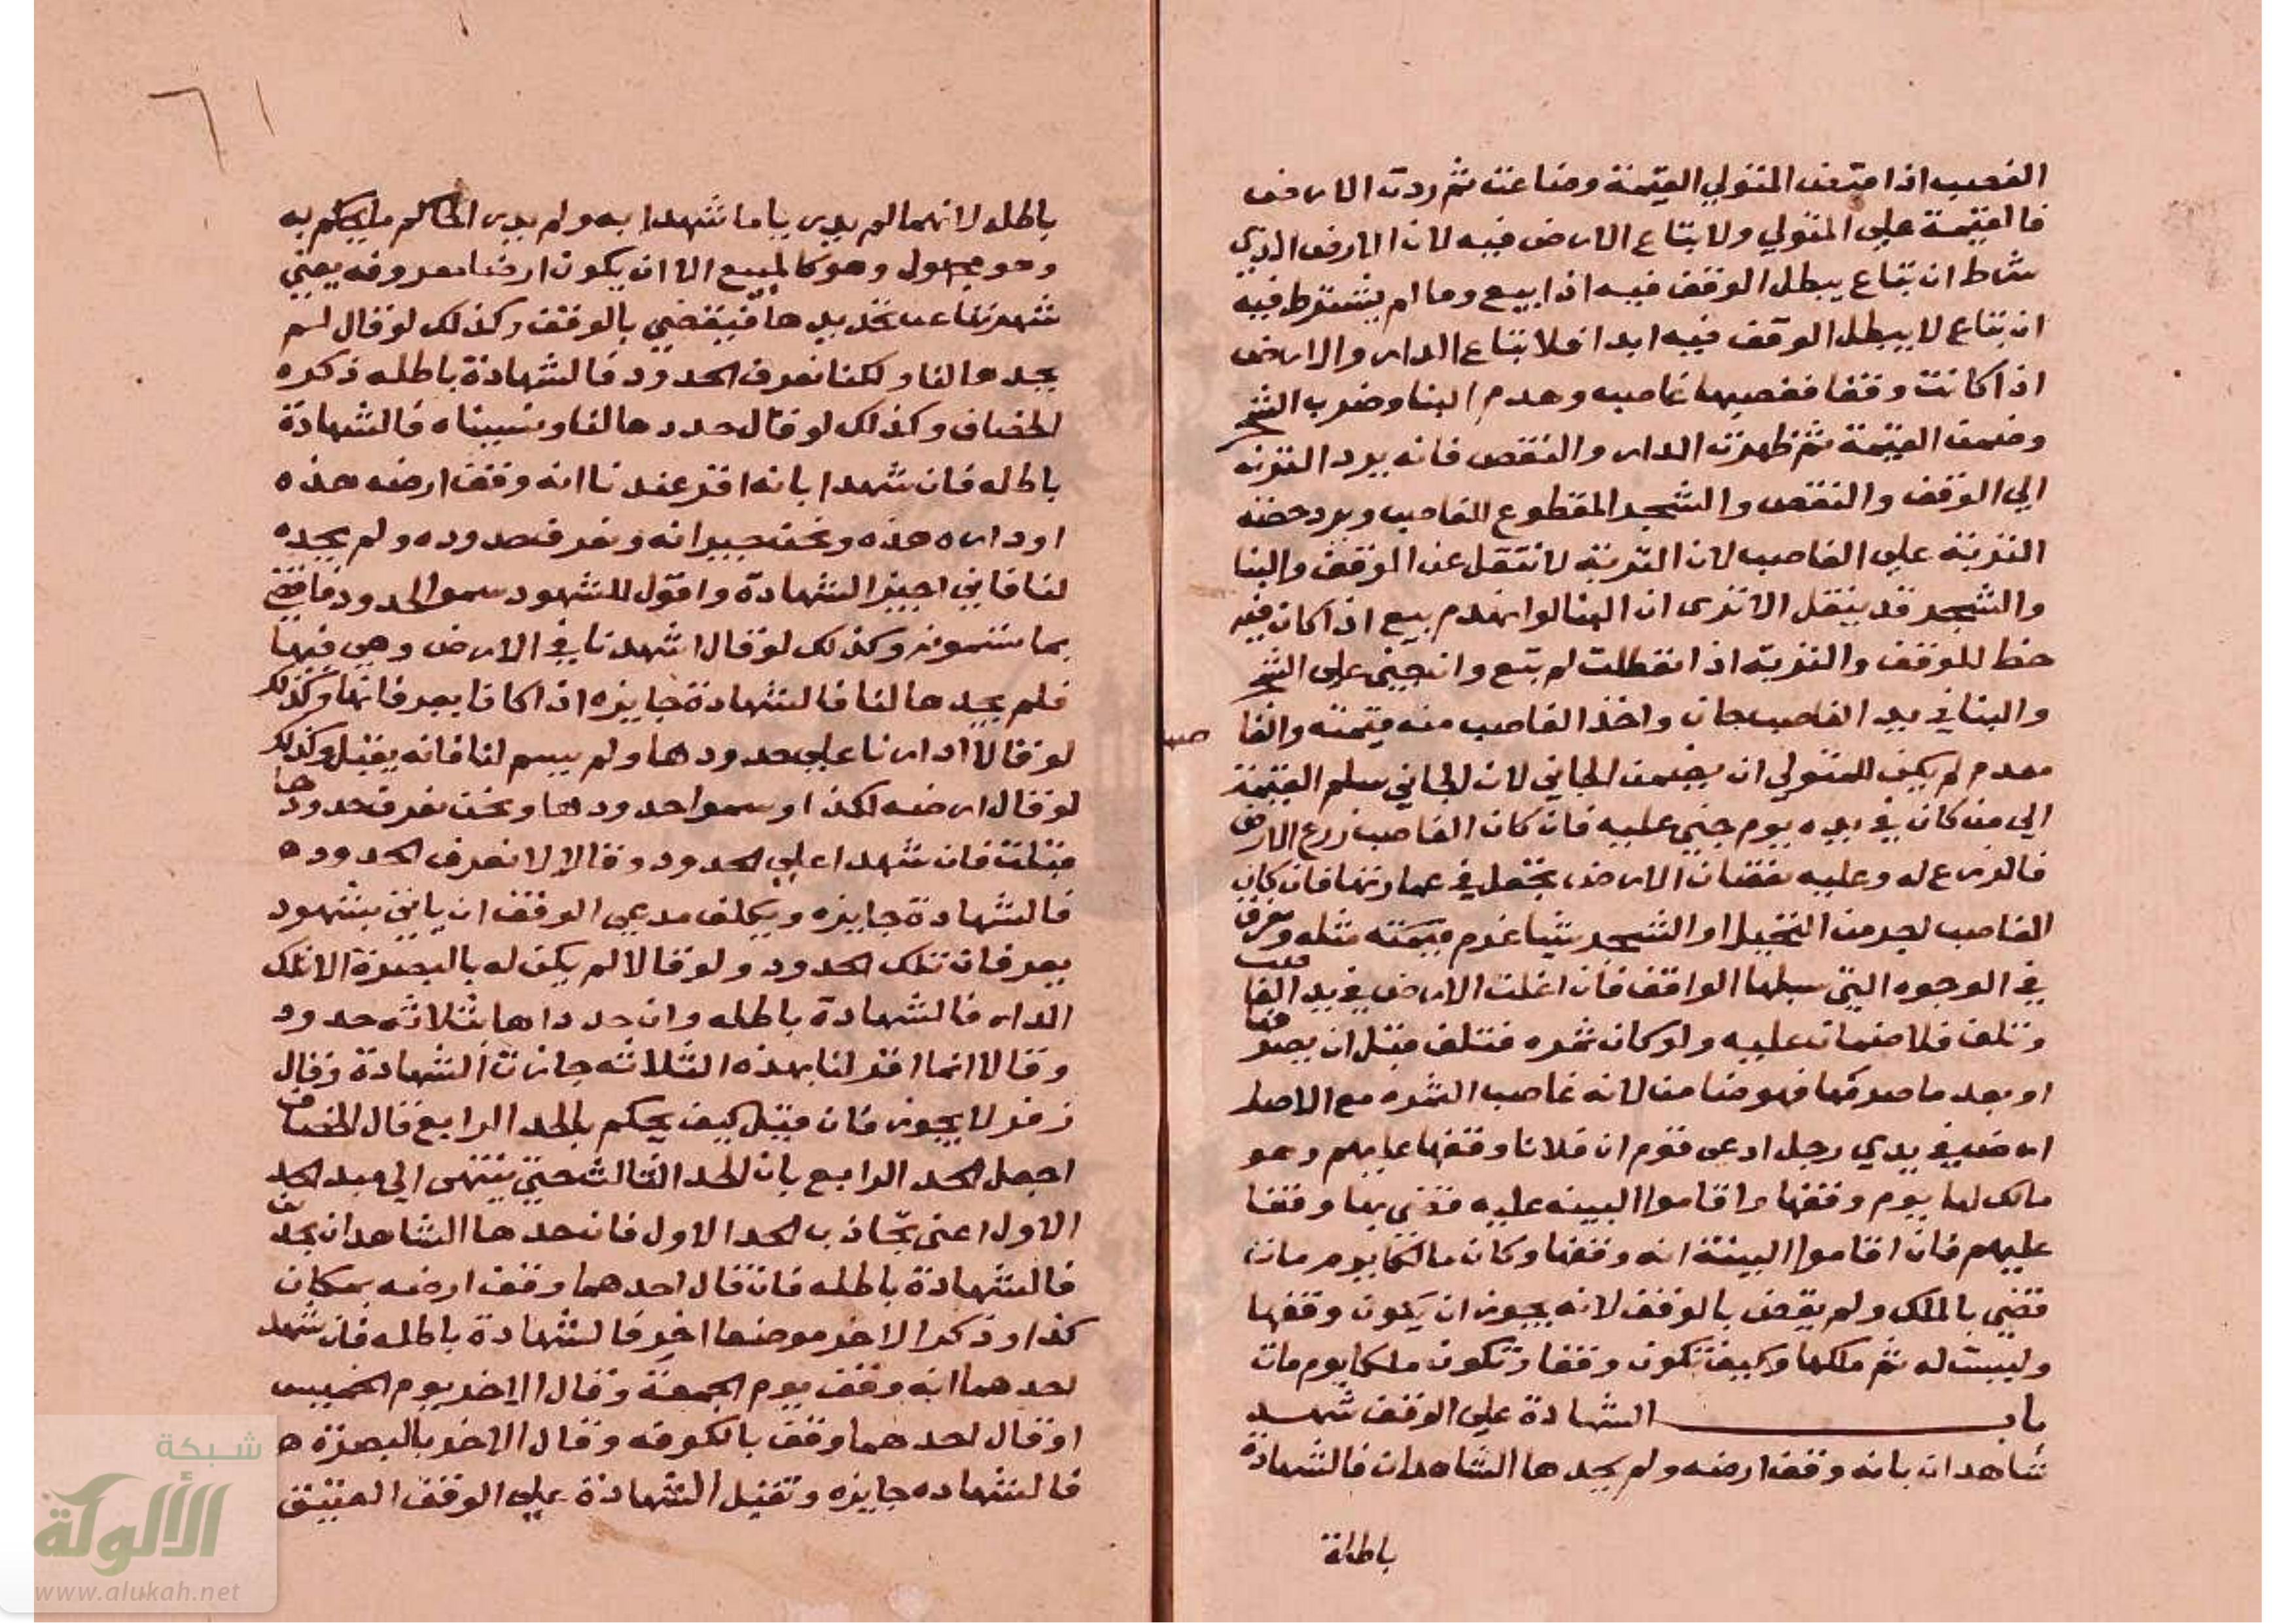 الغصب اذا قبض المتولي القيمة وضاعت ثم ردت الارض
فالقيمة على المتولي ولا بتاع الارض فيه لان الارض الذي
شرط ان بتاع يبطل الوقف فيه اذا ابيع وما لم يشترط فيه
ان بتاع لا يبطل الوقف فيه ابدا فلا بتاع الدار والارض
اذا كانت وقفا فغصبها غاصب وهدم البنا وضرب الشجر
وضمن القيمة ثم ظهرت الدار والنقص فانه يرد التربه
الي الوقف والنقص والشجر المقطوع للغاصب ويرد حصة
التربة علي الغاصب لان التربة لا تنتقل عن الوقف والبنا
والشجر قد ينقل الا ترى ان البنا لو انهدم بيع اذا كان فيه
حظ للوقف والتربة اذا تعطلت لم تبع وان جنى على الشجر
والبنا في يد الغاصب جان واخذ الغاصب منه قيمته والغا صب
معدم لم يكن للمتولي ان يضمن الجاني لان الجاني سلم القيمة
الي من كان في يده يوم جني عليه فان كان الغاصب زرع الارض
فالزرع له وعليه نقصان الارض يجعل في عمارتها فان كان
الغاصب لحد من النخيل او الشجر شيا غرم قيمته مثله وتعرف
في الوجوه التي سبلها الواقف فان اغلت الارض في يد الغا صب
وتلف فلا ضمان عليه ولو كان ثمره فتلف قبل ان يصر فها
او بعد ما صرفها فهو ضامن لانه غاصب الثمره مع الاصل
ارض في يدي رجل ادعى قوم ان فلانا وقفها عليهم وهو
مالك لها يوم وقفها واقاموا البينه عليه فقضى بها وقفا
عليهم فان اقاموا البينة انه وقفها وكان مالكها يوم مات
قضي بالملك ولم يقض بالوقف لانه يجوز ان يكون وقفها
وليست له ثم ملكها وكيف تكون وقفا وتكون ملكا يوم مات
باب الشهادة علي الوقف شهد
شاهدان بانه وقف ارضه ولم يحدها الشاهدان فالشهادة
باطلة
٦١
باطله لانهما لم يدر يا ما شهدا به ولم يدر الحاكم ما يحكم به
وهو مجهول وهو كالمبيع الا ان يكون ارضا معروفه يعني
شهرتها عن تحديدها فيقضي بالوقف وكذلك لو قال لم
يحدها لنا ولكنا نعرف الحدود فالشهادة باطله ذكره
الخصاف وكذلك لو قال حددها لنا ونسيناه فالشهادة
باطله فان شهدا بانه اقر عندنا انه وقف ارضه هذه
او داره هذه ونحن جيرانه ونعرف حدوده ولم يحده
لنا فاني اجيز الشهادة واقول للشهود سموا الحدود فاقضي
بما سموه وكذلك لو قال اشهدنا في الارض وهي فيها
فلم يحدها لنا فالشهادة جايزه اذا كانا يعرفانها وكذلك
لو قالا ادارنا علي حدودها ولم يسم لنا فانه يقبل وكذلك
لو قال ارضه لكذا وسموا حدودها ونحن نعرف حدودها
قبلت فان شهدا علي الحدود وقالا لا نعرف الحدود ه
فالشهادة جايزه ويكلف مدعي الوقف ان ياتي بشهود
يعرفان تلك الحدود ولو قالا لم يكن له بالبصرة الا تلك
الدار فالشهادة باطله وان حدداها بثلاثه حدود
وقالا انما اقر لنا بهذه الثلاثه جازت الشهادة وقال
زفر لا يجوز فان قيل كيف يحكم بالحد الرابع قال الخصاف
اجعل الحد الرابع بان الحد الثالث حتى ينتهى الي مبد الحد
الاول اعنى تجاذب الحد الاول فان حدها الشاهدان بحدين
فالشهادة باطله فان قال احدهما وقف ارضه بمكان
كذا وذكر الاخر موضعا اخر فالشهادة باطله فان شهد
احدهما انه وقف يوم الجمعة وقال الاخر يوم الخميس
او قال احدهما وقف بالكوفه وقال الاخر بالبصرة ه
فالشهاده جايزه وتقبل الشهادة علي الوقف العتيق
شبكة
الألوكة
www.alukah.net